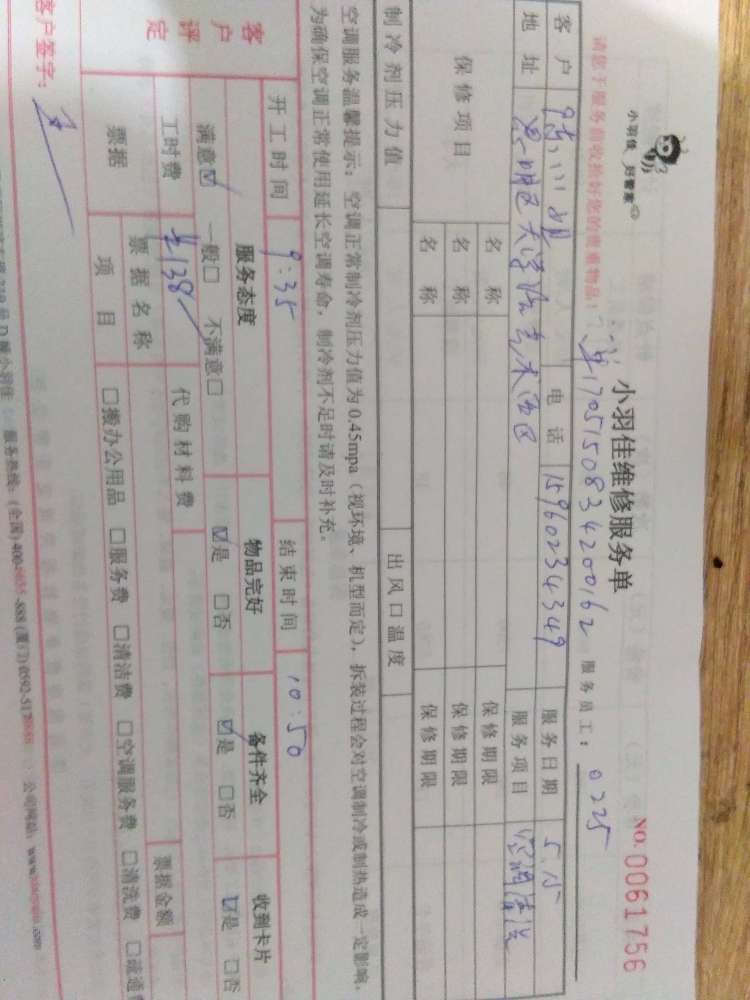 小羽佳 好管家
小羽佳维修服务单
NO. 0061756
请您于服务前收拾好您的贵重物品!
单1705150834200162 服务员工: 0225
客户 电话 15960234349 服务日期 5.15
地址 思明区大学路 服务项目 空调清洗
保修项目 名称 保修期限
名称 保修期限
名称 保修期限
制冷剂压力值 出风口温度
空调服务温馨提示:空调正常制冷剂压力值为0.45mpa(视环境、机型而定),拆装过程会对空调制冷或制热造成一定影响,
为确保空调正常使用延长空调寿命,制冷剂不足时请及时补充。
开工时间 9:35 结束时间 10:50
客户评定 服务态度 物品完好 备件齐全 收到卡片
满意☑ 一般□ 不满意□ ☑是 □否 ☑是 □否 ☑是 □否
工时费 ¥138 代购材料费
票据 票据名称 票据金额
项目 □搬办公用品 □服务费 □清洁费 □空调服务费 □清洗费 □疏通
客户签字:
服务热线:(全国)400- -888 (厦门)0592-517 公司网站:www. .com